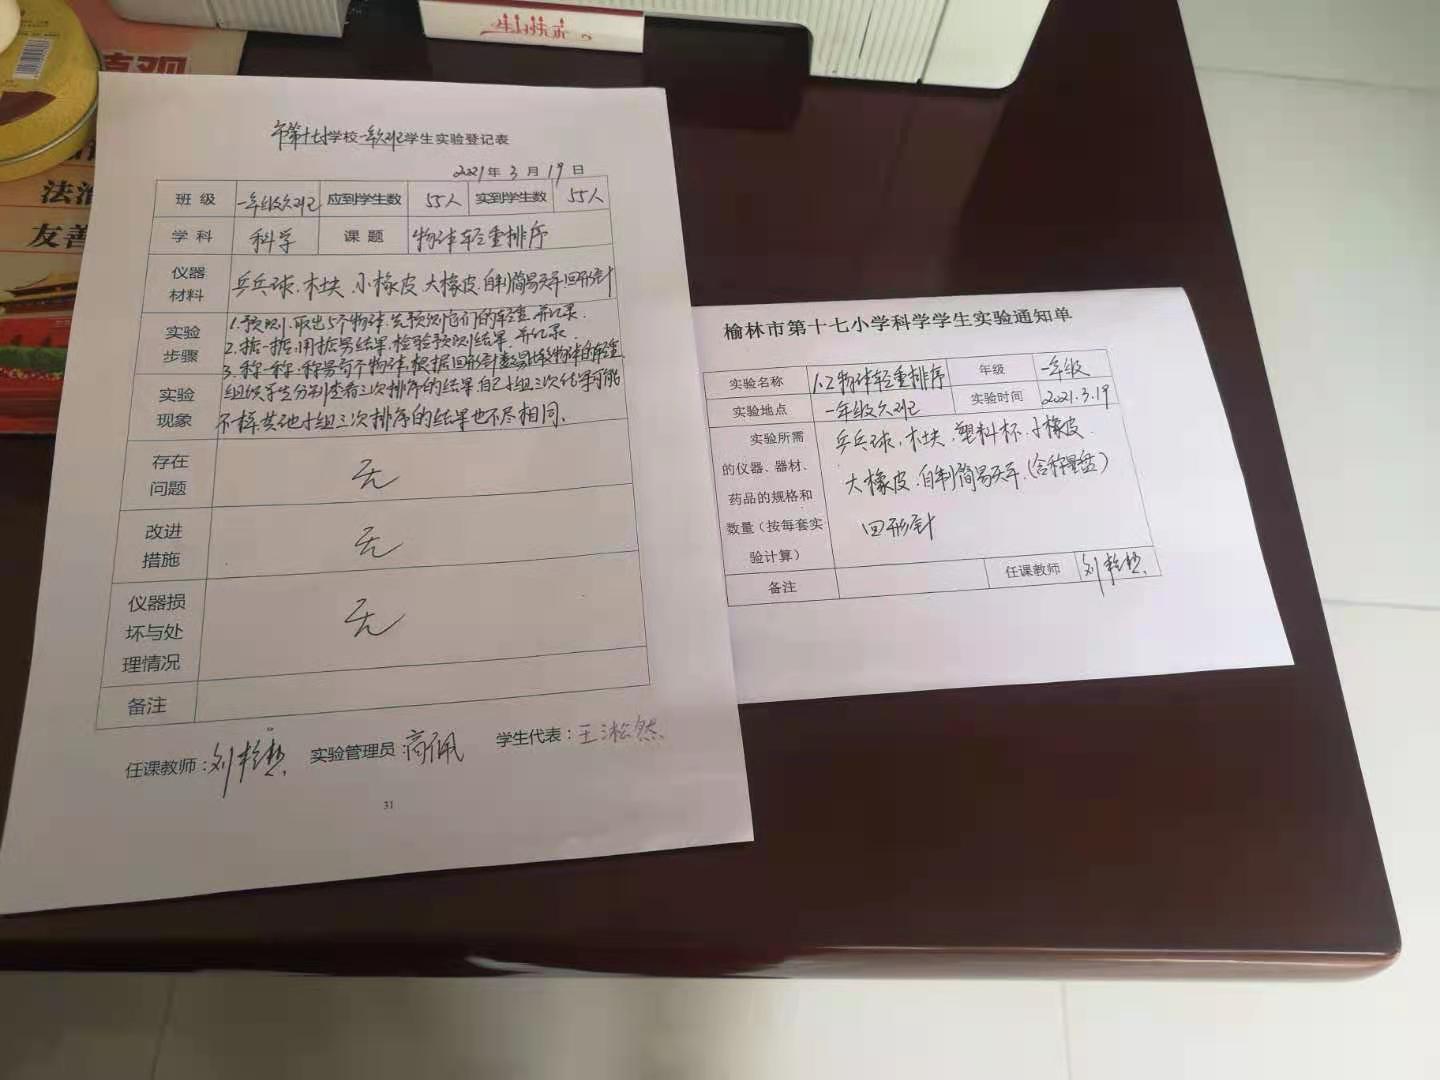 直观
法治
友善
市第十七学校一年级六班学生实验登记表
2021年3月19日
班级 一年级六班 应到学生数 55人 实到学生数 55人
学科 科学 课题 物体轻重排序
仪器材料 乒乓球、木块、小橡皮、大橡皮、自制简易天平、回形针
实验步骤 1.预测:取出5个物体,先预测它们的轻重,并记录.
2.掂一掂:用掂另结果,检验预测结果,并记录.
3.称一称:称另每个物体,根据回形针数另比较物体的轻重
实验现象 组织学生分别查看三次排序的结果自己小组三次结果可能
不一样,其他小组三次排序的结果也不尽相同.
存在问题 无
改进措施 无
仪器损坏与处理情况 无
备注
任课教师: 刘 实验管理员: 高佩 学生代表: 王淞然
31
榆林市第十七小学科学学生实验通知单
实验名称 1.2物体轻重排序 年级 一年级
实验地点 一年级六班 实验时间 2021.3.19
实验所需的仪器、器材、药品的规格和数量(按每套实验计算) 乒乓球、木块、塑料杯、小橡皮、
大橡皮、自制简易天平、(含称量盘)
回形针
备注 任课教师 刘